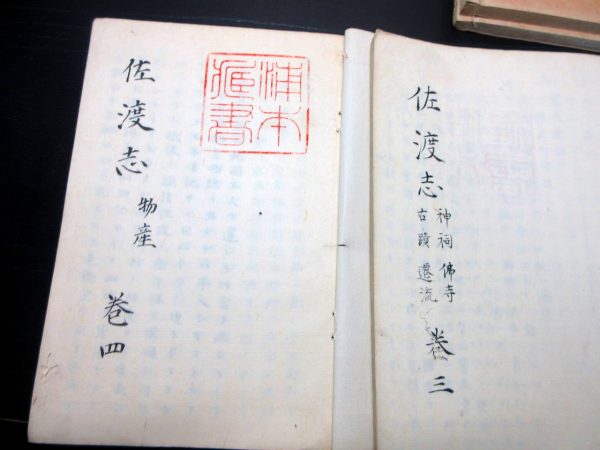 佐渡志
神祠 佛寺
古蹟 遷流
巻三
浦本
蔵書
佐渡志 物産 巻四